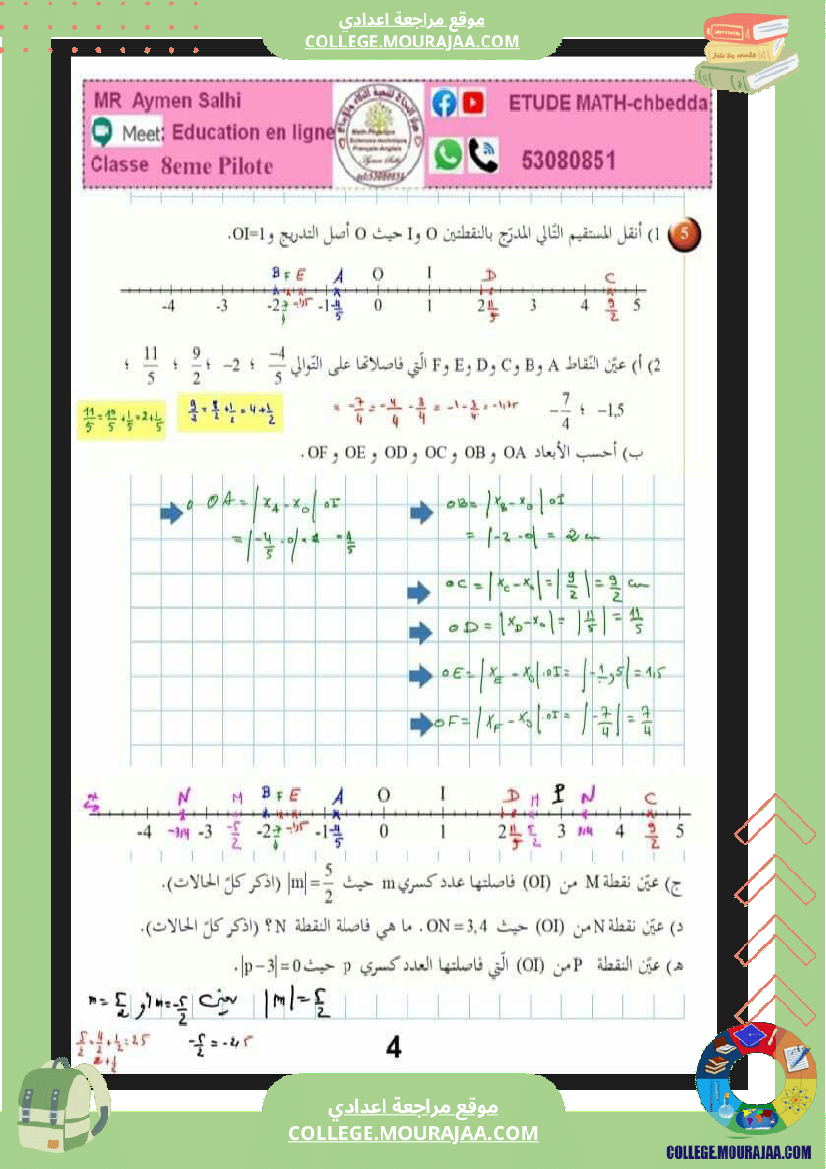 موقع مراجعة اعدادي
COLLEGE.MOURAJAA.COM
MR Aymen Salhi
ETUDE MATH-chbedda
Meet: Education en ligne
Classe 8eme Pilote
53080851
5
1) أنقل المستقيم التّالي المدرّج بالنقطتين O و I حيث O أصل التدريج و OI=1.
B F E A O I D C
-4 -3 -2 -7/4 -1,5 -1 -4/5 0 1 2 11/5 3 4 9/2 5
2) أ) عيّن النّقاط A و B و C و D و E و F الّتي فاصلاتها على التّوالي -4/5 ؛ -2 ؛ 9/2 ؛ 11/5 ؛
-7/4 ؛ -1,5
= -7/4 = -4/4 - 3/4 = -1 - 3/4 = -1,75
9/2 = 8/2 + 1/2 = 4 + 1/2
11/5 = 10/5 + 1/5 = 2 + 1/5
ب) أحسب الأبعاد OA و OB و OC و OD و OE و OF.
OA = |xA - xO| OI
= |-4/5 - 0| × 1 = 4/5
OB = |xB - xO| OI
= |-2 - 0| = 2 cm
OC = |xC - xO| = |9/2| = 9/2 cm
OD = |xD - xO| = |11/5| = 11/5
OE = |xE - xO| . OI = |-1,5| = 1,5
OF = |xF - xO| . OI = |-7/4| = 7/4
N M B F E A O I D M P N C
-4 -3,4 -3 -5/2 -2 -7/4 -1,5 -1 -4/5 0 1 2 11/5 5/2 3 3,4 4 9/2 5
ج) عيّن نقطة M من (OI) فاصلتها عدد كسري m حيث |m| = 5/2 (اذكر كلّ الحالات).
د) عيّن نقطة N من (OI) حيث ON = 3,4. ما هي فاصلة النقطة N؟ (اذكر كلّ الحالات).
هـ) عيّن النقطة P من (OI) الّتي فاصلتها العدد كسري p حيث |p-3| = 0.
|m| = 5/2 يعني m = -5/2 أو m = 5/2
5/2 = 4/2 + 1/2 = 2,5
2 + 1/2
-5/2 = -2,5
4
موقع مراجعة اعدادي
COLLEGE.MOURAJAA.COM
COLLEGE.MOURAJAA.COM